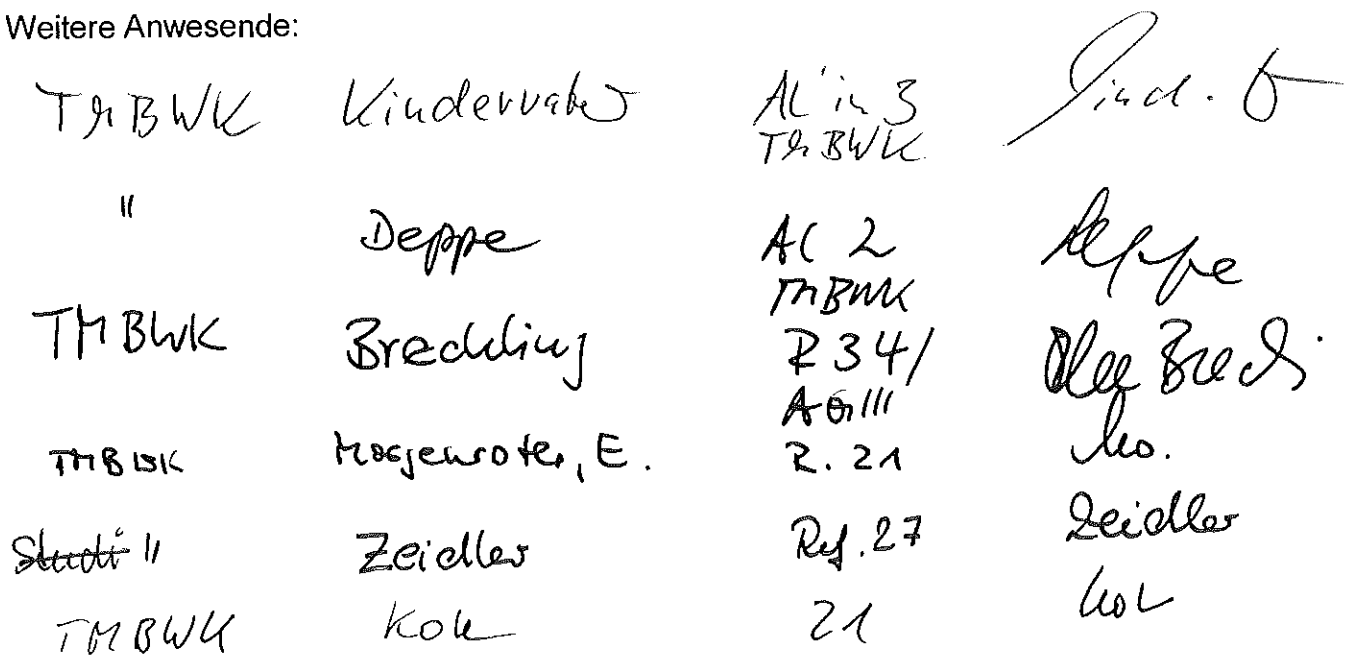 Weitere Anwesende:
TMBWK Kindervater AL'in 3
TMBWK
" Deppe AL 2 Deppe
TMBWK
TMBWK Breckling R 34/
AG III
TMBWK Morgenroter, E. R. 21 Mo.
Studi " Zeidler Ref. 27 Zeidler
TMBWK Koh 21 Koh